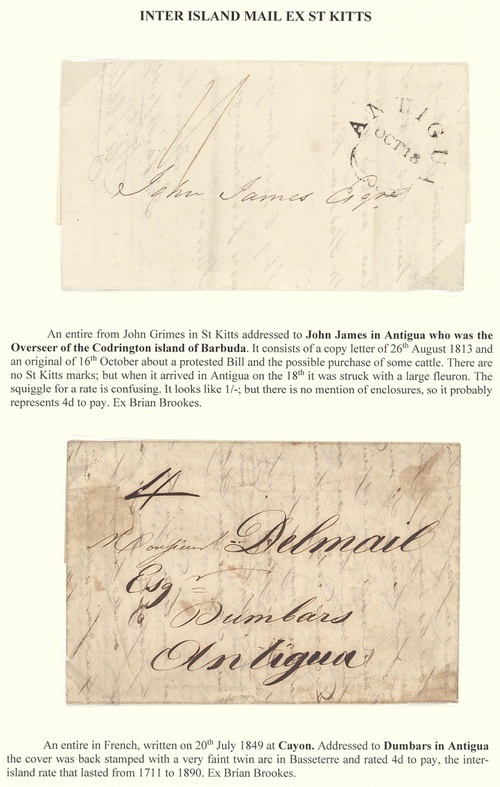 INTER ISLAND MAIL EX ST KITTS
ANTIGUA
OCT 18
John James Esqre
An entire from John Grimes in St Kitts addressed to John James in Antigua who was the
Overseer of the Codrington island of Barbuda. It consists of a copy letter of 26th August 1813 and
an original of 16th October about a protested Bill and the possible purchase of some cattle. There are
no St Kitts marks; but when it arrived in Antigua on the 18th it was struck with a large fleuron. The
squiggle for a rate is confusing. It looks like 1/-; but there is no mention of enclosures, so it probably
represents 4d to pay. Ex Brian Brookes.
4
Monsieur Delmail
Esq
Dumbars
Antigua
An entire in French, written on 20th July 1849 at Cayon. Addressed to Dumbars in Antigua
the cover was back stamped with a very faint twin arc in Basseterre and rated 4d to pay, the inter-
island rate that lasted from 1711 to 1890. Ex Brian Brookes.